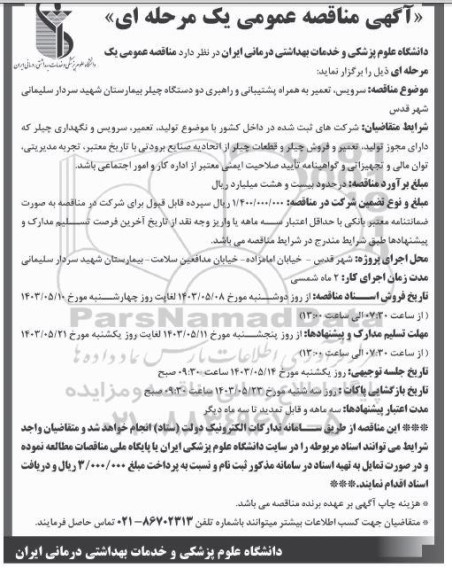 «آگهی مناقصه عمومی یک مرحله ای»
دانشگاه علوم پزشکی و خدمات بهداشتی درمانی ایران
دانشگاه علوم پزشکی و خدمات بهداشتی درمانی ایران در نظر دارد مناقصه عمومی یک
مرحله ای ذیل را برگزار نماید:
موضوع مناقصه: سرویس، تعمیر به همراه پشتیبانی و راهبری دو دستگاه چیلر بیمارستان شهید سردار سلیمانی
شهر قدس
شرایط متقاضیان: شرکت های ثبت شده در داخل کشور با موضوع تولید، تعمیر، سرویس و نگهداری چیلر که
دارای مجوز تولید، تعمیر و فروش چیلر و قطعات چیلر از اتحادیه صنایع برودتی با تاریخ معتبر، تجربه مدیریتی،
توان مالی و تجهیزاتی و گواهینامه تأیید صلاحیت ایمنی معتبر از اداره کار و امور اجتماعی باشد.
مبلغ برآورد مناقصه: در حدود بیست و هشت میلیارد ریال
مبلغ و نوع تضمین شرکت در مناقصه: ۱/۴۰۰/۰۰۰/۰۰۰ ریال سپرده قابل قبول برای شرکت در مناقصه به صورت
ضمانتنامه معتبر بانکی با حداقل اعتبار سه ماهه یا واریز وجه نقد از تاریخ آخرین فرصت تسلیم مدارک و
پیشنهادها طبق شرایط مندرج در شرایط مناقصه می باشد.
محل اجرای پروژه: شهر قدس - خیابان امامزاده - خیابان مدافعین سلامت - بیمارستان شهید سردار سلیمانی
مدت زمان اجرای کار: ۲ ماه شمسی
تاریخ فروش اسناد مناقصه: از روز دوشنبه مورخ ۱۴۰۳/۰۵/۰۸ لغایت روز چهارشنبه مورخ ۱۴۰۳/۰۵/۱۰
(از ساعت ۰۷:۳۰ الی ساعت ۱۳:۰۰)
مهلت تسلیم مدارک و پیشنهادها: از روز پنجشنبه مورخ ۱۴۰۳/۰۵/۱۱ لغایت روز یکشنبه مورخ ۱۴۰۳/۰۵/۲۱
(از ساعت ۰۷:۳۰ الی ساعت ۱۳:۰۰)
تاریخ جلسه توجیهی: روز یکشنبه مورخ ۱۴۰۳/۰۵/۱۴ ساعت ۰۹:۳۰ صبح
تاریخ بازگشایی پاکات: روز سه شنبه مورخ ۱۴۰۳/۰۵/۲۳ ساعت ۰۹:۳۰ صبح
مدت اعتبار پیشنهادها: سه ماهه و قابل تمدید تا سه ماه دیگر
*** این مناقصه از طریق سامانه تدارکات الکترونیک دولت (ستاد) انجام خواهد شد و متقاضیان واجد
شرایط می توانند اسناد مربوطه را در سایت دانشگاه علوم پزشکی ایران یا پایگاه ملی مناقصات مطالعه نموده
و در صورت تمایل به تهیه اسناد در سامانه مذکور ثبت نام و نسبت به پرداخت مبلغ ۳/۰۰۰/۰۰۰ ریال و دریافت
اسناد اقدام نمایند.***
* هزینه چاپ آگهی بر عهده برنده مناقصه می باشد.
* متقاضیان جهت کسب اطلاعات بیشتر میتوانند با شماره تلفن ۸۶۷۰۲۳۱۳-۰۲۱ تماس حاصل فرمایند.
دانشگاه علوم پزشکی و خدمات بهداشتی درمانی ایران